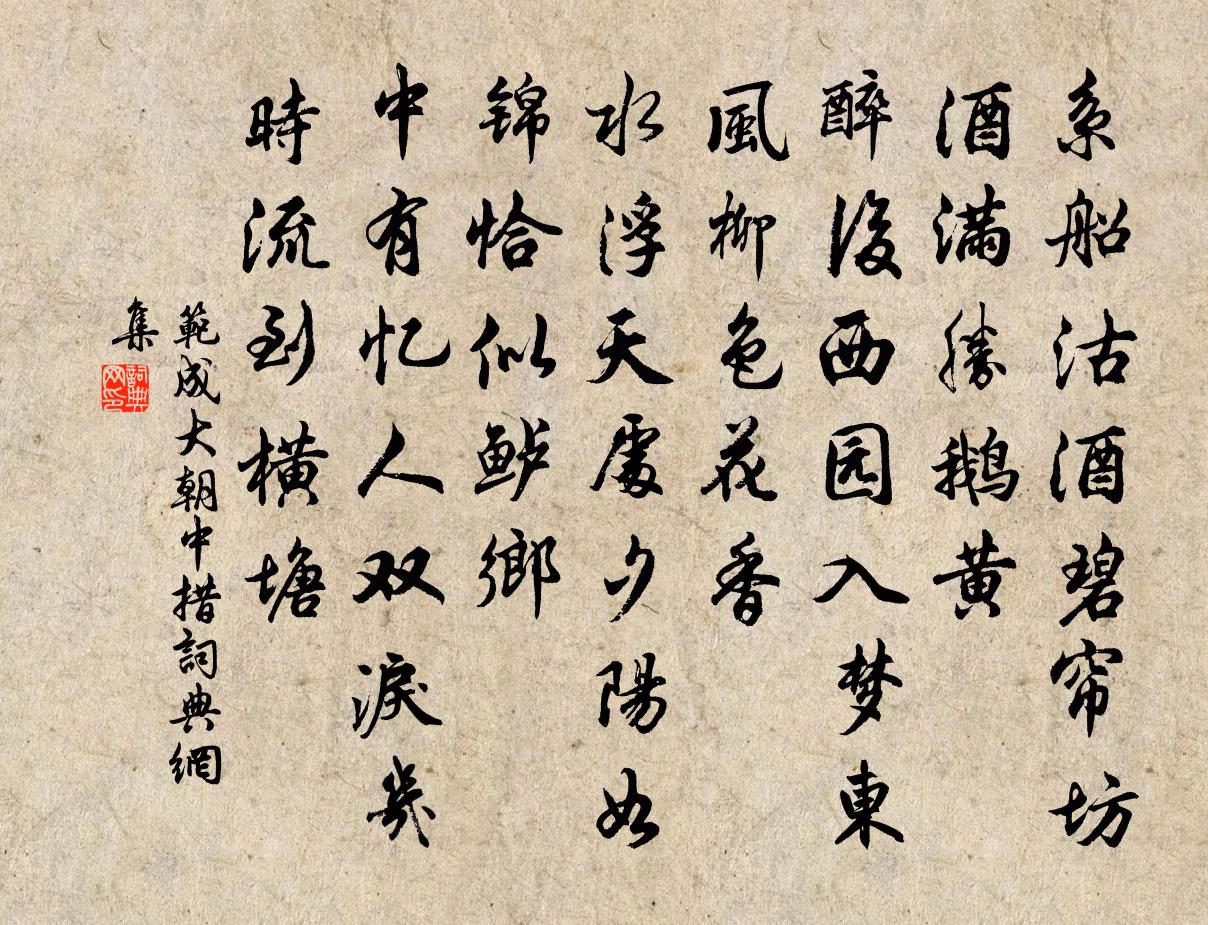 系船沽酒碧帘坊
酒满勝鹅黄
醉後西园入梦東
風柳色花香
水浮天處夕陽如
锦恰似鲈鄉
中有忆人双淚幾
時流到横塘
範成大朝中措詞典網
集
詞典
网印